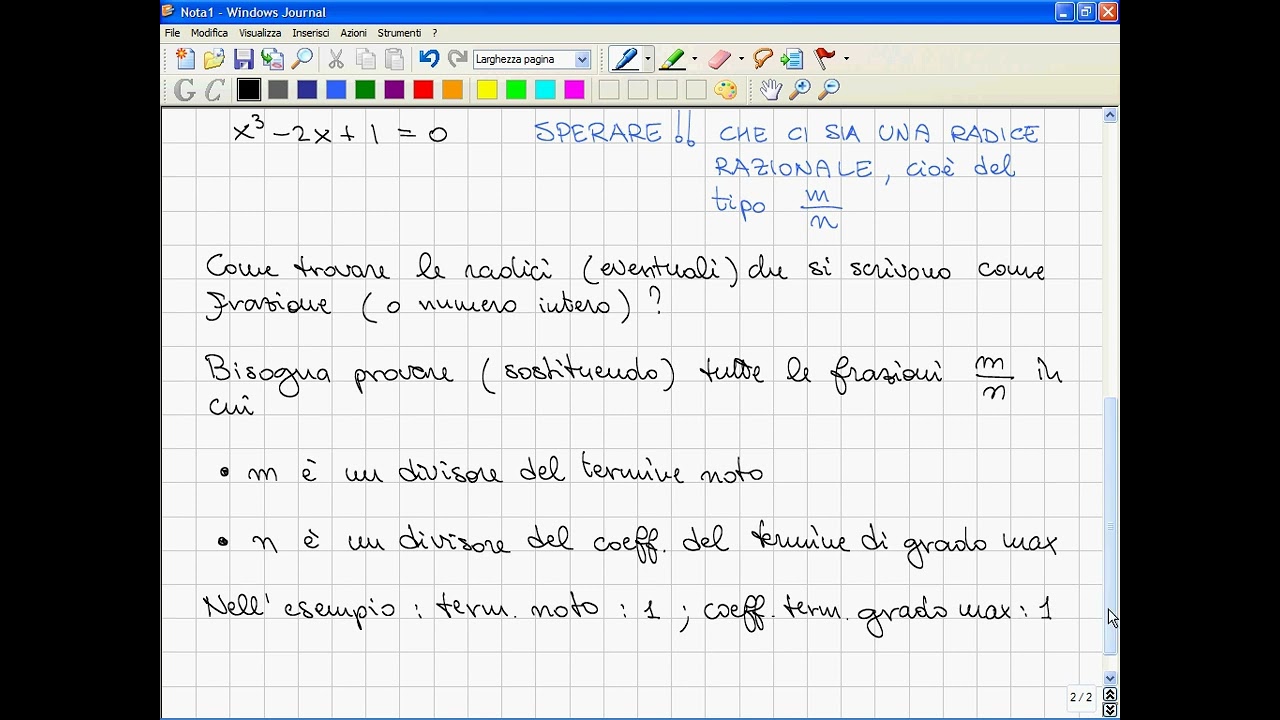 Nota1 - Windows Journal
File Modifica Visualizza Inserisci Azioni Strumenti ?
Larghezza pagina
G C
x³ - 2x + 1 = 0 SPERARE !! CHE CI SIA UNA RADICE
RAZIONALE, cioè del
tipo m/n
Come trovare le radici (eventuali) che si scrivono come
frazione (o numero intero) ?
Bisogna provare (sostituendo) tutte le frazioni m/n in
cui
• m è un divisore del termine noto
• n è un divisore del coeff. del termine di grado max
Nell' esempio : term. noto : 1 ; coeff. term. grado max : 1
2/2